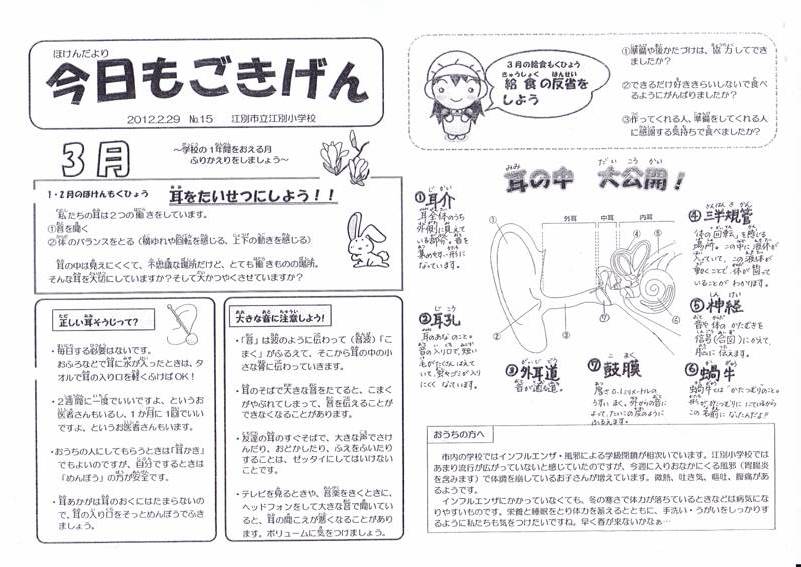 ほけんだより
今日もごきげん
2012.2.29 №15 江別市立江別小学校
3月
～学校の1年間をおえる月
ふりかえりをしましょう～
1・2月のほけんもくひょう 耳をたいせつにしよう！！
私たちの耳は2つの働きをしています。
①音を聞く
②体のバランスをとる（横ゆれや回転を感じる、上下の動きを感じる）
耳の中は見えにくくて、不思議な場所だけど、とても働きものの場所。
そんな耳を大切にしていますか？そして大かつやくさせていますか？
正しい耳そうじって？
・毎日する必要はないです。
おふろなどで耳に水が入ったときは、タ
オルで耳の入り口を軽くふけばOK！
・2週間に一度でいいですよ、というお
医者さんもいるし、1か月に1回でいい
ですよ、というお医者さんもいます。
・おうちの人にしてもらうときは「耳かき」
でもよいのですが、自分でするときは
「めんぼう」の方が安全です。
・耳あかがは耳のおくにはたまらないの
で、耳の入り口をそっとめんぼうでふき
ましょう。
大きな音に注意しよう！
・「音」は波のように伝わって（音波）「こ
まく」がふるえて、そこから耳の中の小
さな骨に伝わっていきます。
・耳のそばで大きな音をたてると、こまく
がやぶれてしまって、音を伝えることが
できなくなることがあります。
・友達の耳のすぐそばで、大きな声でさけ
んだり、おどかしたり、ふえをふいたり
することは、ゼッタイにしてはいけない
ことです。
・テレビを見るときや、音楽をきくときに、
ヘッドフォンをして大きな音で聞いてい
ると、耳の聞こえが悪くなることがあり
ます。ボリュームに気をつけましょう。
3月の給食もくひょう
給食の反省を
しよう
①準備や後かたづけは、協力してでき
ましたか？
②できるだけ好ききらいしないで食べ
るようにがんばりましたか？
③作ってくれる人、準備をしてくれる人
に感謝する気持ちで食べましたか？
耳の中 大公開！
①耳介
耳全体のうち
外側に見えて
いる部分。音を
集めやすい形に
なっています。
②耳孔
耳のあなのこと。
音の入り口で、短い
毛がたくさんはえて
いて、異ぶつが入り
にくくなっています。
③外耳道
音が通る道。
外耳 中耳 内耳
1
2
3
4
5
6
7
④三半規管
「体の回転」を感じる
場所。この中に液体が
入っていて、この液体が
動くことで体が回って
いることがわかります。
⑤神経
音や体のかたむきを
信号（合図）にかえて、
脳に伝えます。
⑦鼓膜
厚さ0.1ミリメートルの
うすいまく。外からの音に
よって、たいこの皮のように
ふるえます。
⑥蝸牛
蝸牛とは「かたつむり」のこと。
形がかたつむりににているから
この名前になったんだよ！！
おうちの方へ
市内の学校ではインフルエンザ・風邪による学級閉鎖が相次いでいます。江別小学校では
あまり流行が広がっていないと感じていたのですが、今週に入りおなかにくる風邪（胃腸炎
を含みます）で体調を崩しているお子さんが増えています。微熱、吐き気、嘔吐、腹痛があ
るようです。
インフルエンザにかかっていなくても、冬の寒さで体力が落ちているときなどは病気にな
りやすいものです。栄養と睡眠をとり体力を蓄えるとともに、手洗い・うがいをしっかりす
るように私たちも気をつけたいですね。早く春が来ないかなぁ…